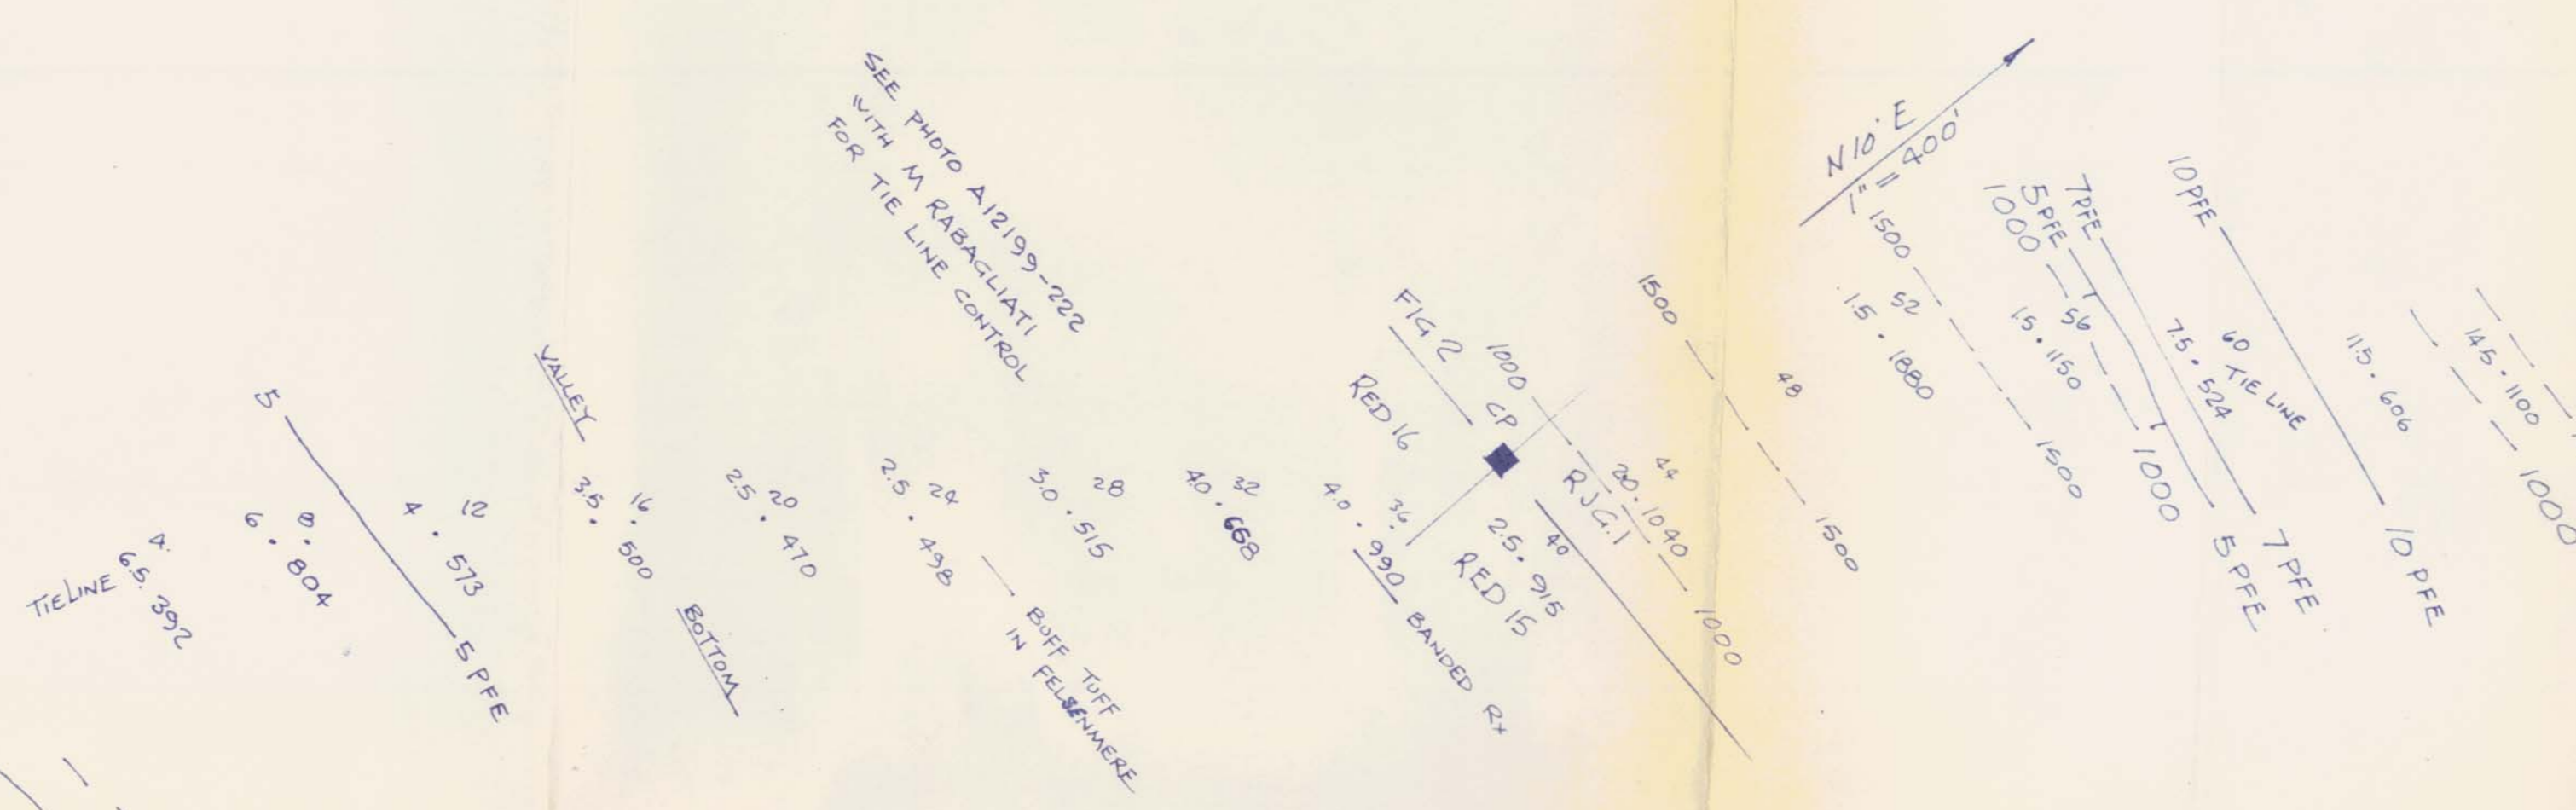 SEE PHOTO A12199-222
WITH M RABAGLIATI
FOR TIE LINE CONTROL
N10°E
1" = 400'
TIELINE
4
6.5 . 392
8
6 . 804
5
5 PFE
12
4 . 573
VALLEY
BOTTOM
16
3.5 . 500
20
2.5 . 470
24
2.5 . 498
BUFF TUFF
IN FELSENMERE
28
3.0 . 515
32
4.0 . 668
36
4.0 . 990
BANDED RX
FIG 2
RED 16
CP
40
2.5 . 915
RED 15
RJG.1
44
20 . 1040
1000
1000
1500
1500
48
52
1.5 . 1880
1500
1500
56
1.5 . 1150
1000
1000
5 PFE
5 PFE
7 PFE
7 PFE
60 TIE LINE
7.5 . 524
10 PFE
10 PFE
11.5 . 606
14.5 . 1100
1000